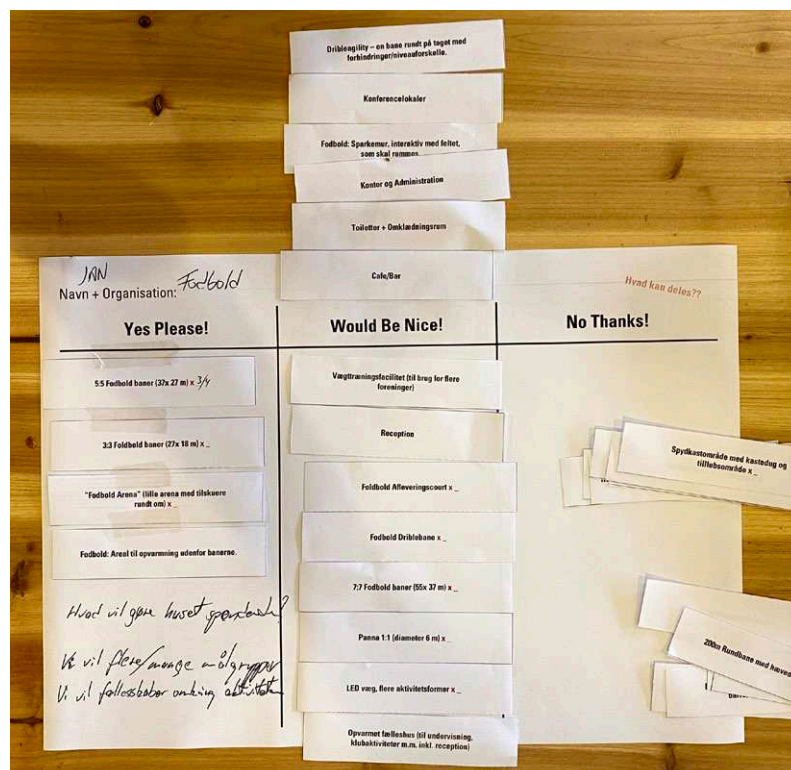 Dribleagility – en bane rundt på taget med
forhindringer/niveauforskelle.
Konferencelokaler
Fodbold: Sparkemur, interaktiv med feltet,
som skal rammes.
Kontor og Administration
Toiletter + Omklædningsrum
Cafe/Bar
JAN
Navn + Organisation: Fodbold
Hvad kan deles??
Yes Please!
Would Be Nice!
No Thanks!
5:5 Fodbold baner (37x 27 m) x 3/4
3:3 Foldbold baner (27x 18 m) x _
"Fodbold Arena" (lille arena med tilskuere
rundt om) x _
Fodbold: Areal til opvarmning udenfor banerne.
Hvad vil gøre huset spændende?
Vi vil flere/mange målgrupper
Vi vil fællesskaber omkring aktiviteten
Vægttræningsfacilitet (til brug for flere
foreninger)
Reception
Foldbold Afleveringscourt x _
Fodbold Driblebane x _
7:7 Fodbold baner (55x 37 m) x _
Panna 1:1 (diameter 6 m) x _
LED væg, flere aktivitetsformer x _
Opvarmet fælleshus (til undervisning,
klubaktiviteter m.m. inkl. reception)
Spydkastområde med kastedug og
tilløbsområde x _
200m Rundbane med